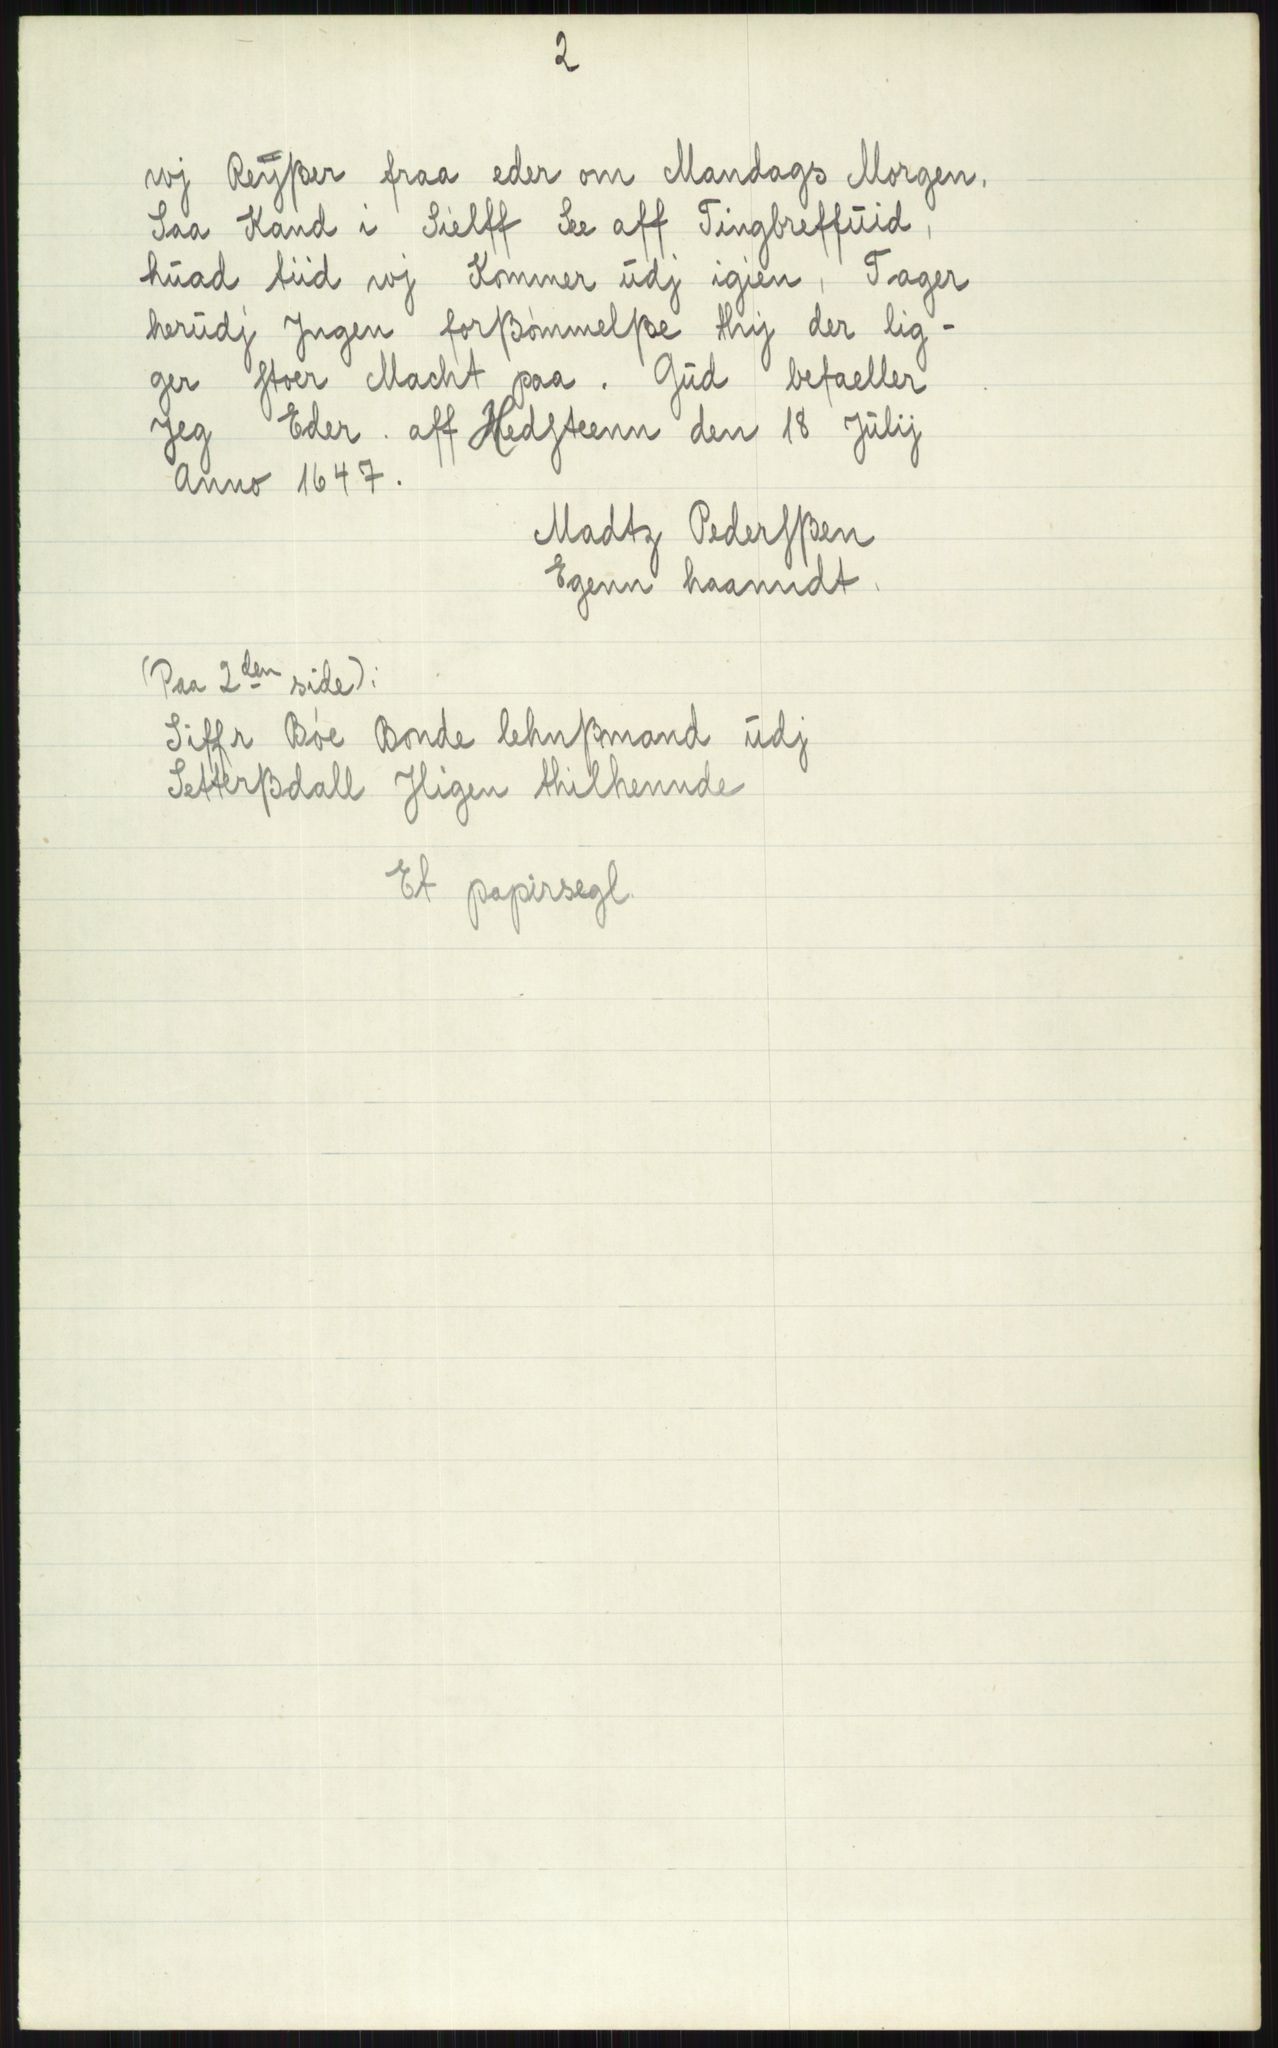 2
wj Reÿßer fraa eder om Mandags Morgen.
Saa Kand i Sielff See aff Tingbreffūid,
hūad tiid wj Kommer ūdj igien, Tager
herūdj Jngen forßömmelße thij der lig-
ger stoer Macht paa. Gūd befaeller
Jeg Eder. aff Hedsteenn den 18 Jūlij
Anno 1647.
Madtz Pedersßen
Egenn haanndt.
(Paa 2den side):
Siffr Bóe Bonde lehnßmand ūdj
Setterßdall Jligen thilhennde
Et papirsegl.